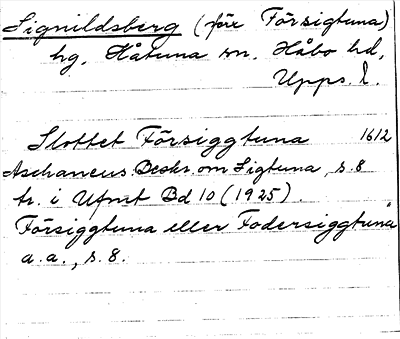 Signildsberg (före Försigtuna)
hg, Håtuna sn. Håbo hd,
Upps. l.
Slottet Försiggtuna 1612
Aschaneus Beskr. om Sigtuna, s. 8
tr. i Ufmt Bd 10 (1925).
Försiggtuna eller Fodersiggtuna
a. a., s. 8.